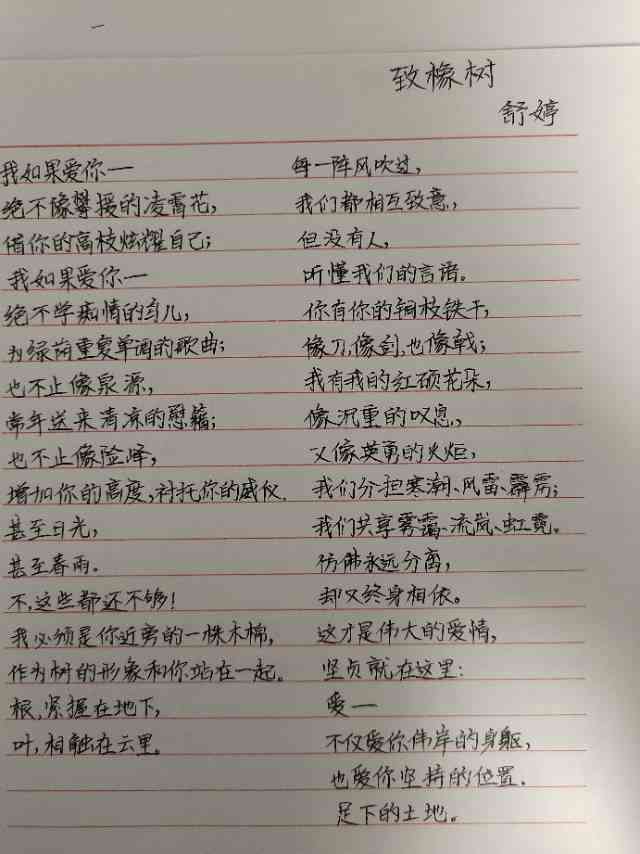 致橡树
舒婷
我如果爱你一
绝不像攀援的凌霄花,
借你的高枝炫耀自己;
我如果爱你一
绝不学痴情的鸟儿,
为绿荫重复单调的歌曲;
也不止像泉源,
常年送来清凉的慰藉;
也不止像险峰,
增加你的高度,衬托你的威仪.
甚至日光,
甚至春雨.
不,这些都还不够!
我必须是你近旁的一株木棉,
作为树的形象和你站在一起。
根,紧握在地下,
叶,相触在云里。
每一阵风吹过,
我们都相互致意,
但没有人,
听懂我们的言语。
你有你的铜枝铁干,
像刀,像剑,也像戟;
我有我的红硕花朵,
像沉重的叹息,
又像英勇的火炬,
我们分担寒潮、风雷、霹雳;
我们共享雾霭、流岚、虹霓。
仿佛永远分离,
却又终身相依。
这才是伟大的爱情,
坚贞就在这里:
爱一
不仅爱你伟岸的身躯,
也爱你坚持的位置.
足下的土地。